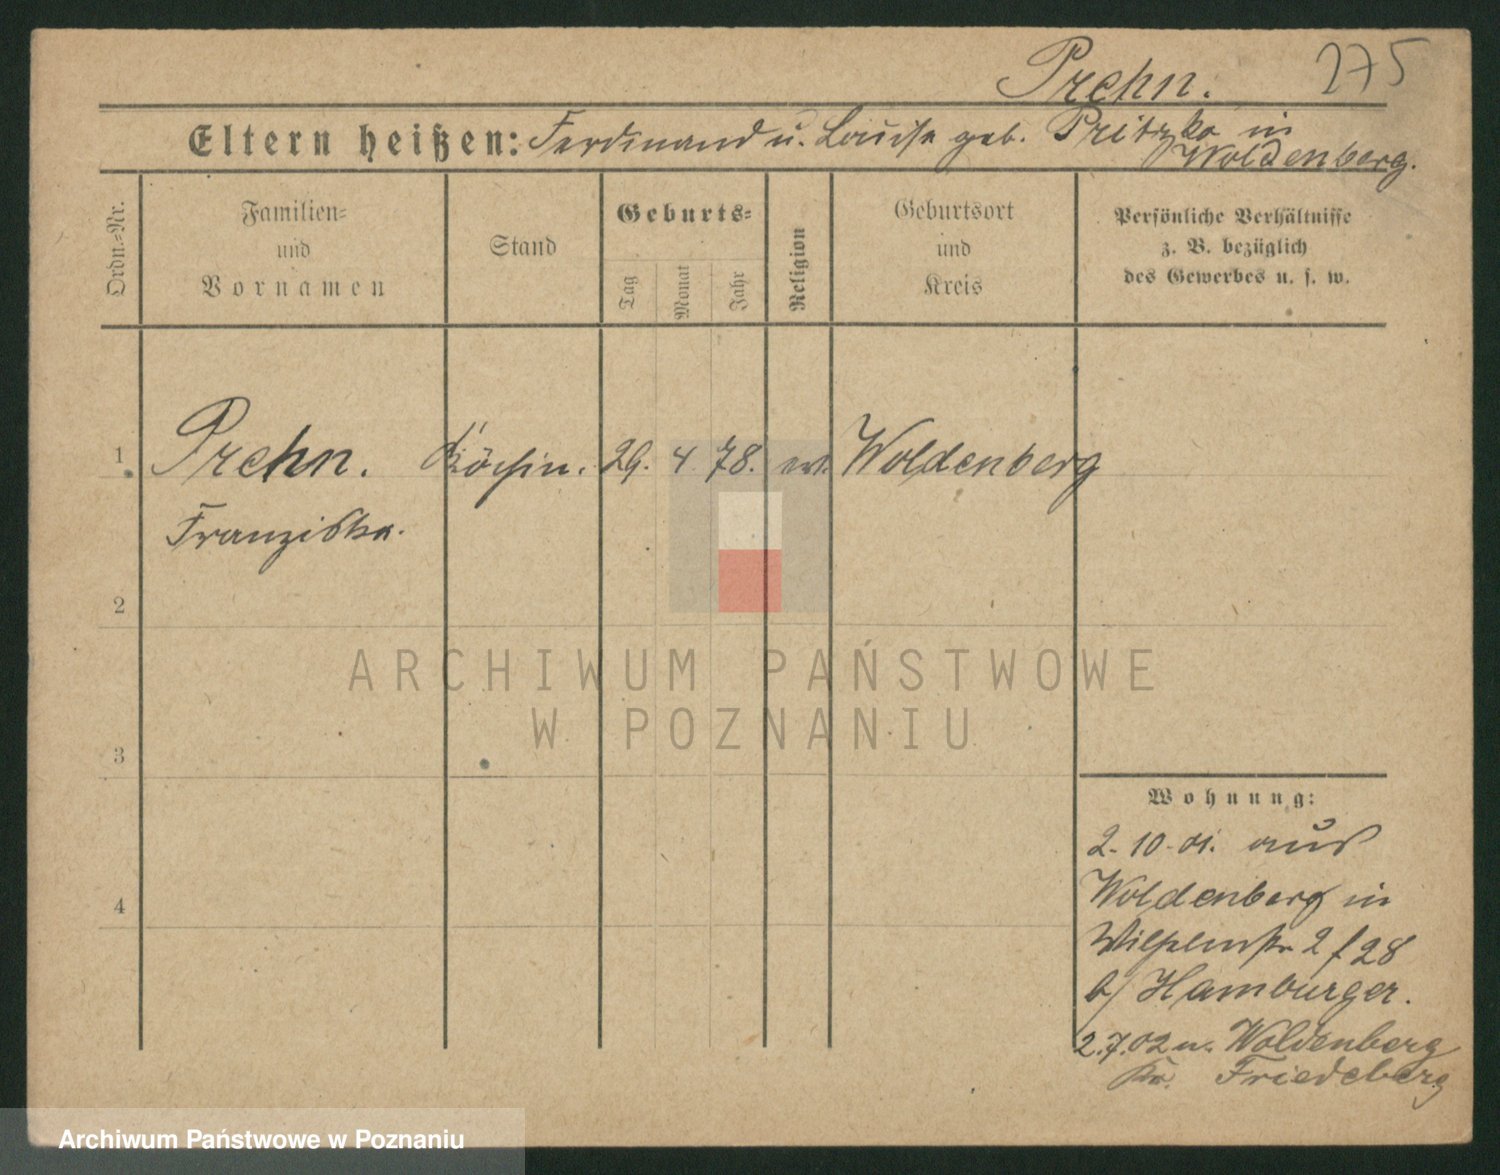 Prehn. 275
Eltern heißen: Ferdinand u. Louise geb. Pritzko in
Woldenberg.
Ordn.=Nr.
Familien=
und
Vornamen
Stand
Geburts=
Tag
Monat
Jahr
Religion
Geburtsort
und
Kreis
Persönliche Verhältnisse
z. B. bezüglich
des Gewerbes u. s. w.
1 Prehn. Köchin. 29. 4. 78. ev. Woldenberg
Franziska.
2
ARCHIWUM PAŃSTWOWE
W POZNANIU
3
Wohnung:
2.10.01. aus
4 Woldenberg in
Wilhelmstr 28
b/ Hamburger.
2.7.02 n. Woldenberg
Kr. Friedeberg
Archiwum Państwowe w Poznaniu